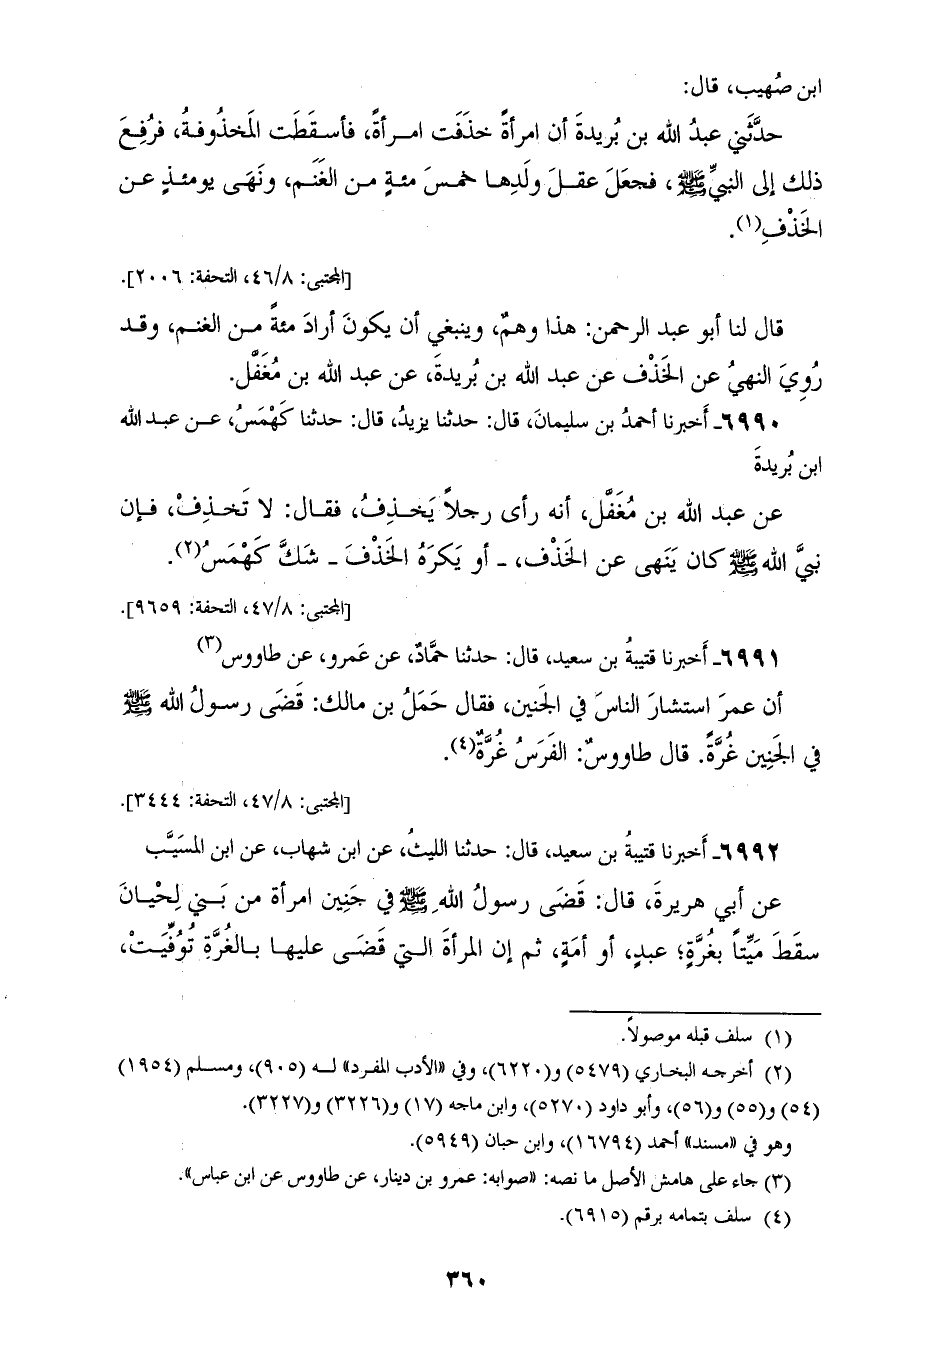 ابن صُهيب، قال:
حدَّثَني عبدُ الله بن بُريدةَ أن امرأةً خذَفَت امرأةً، فأسقَطَت المَخذُوفةُ، فرُفِعَ
ذلك إلى النبيِّ ﷺ، فجعَلَ عقلَ ولَدِها خمسَ مئةٍ من الغَنَم، ونَهَى يومئذٍ عن
الخَذْفِ(١).
[المجتبى: ٤٦/٨، التحفة: ٢٠٠٦].
قال لنا أبو عبد الرحمن: هذا وهمٌ، وينبغي أن يكونَ أرادَ مئةً من الغنم، وقد
رُوِيَ النهيُ عن الخَذْف عن عبد الله بن بُريدةَ، عن عبد الله بن مُغَفَّل.
٦٩٩٠ـ أَخبرنا أحمدُ بن سليمانَ، قال: حدثنا يزيدُ، قال: حدثنا كَهْمَسُ، عن عبد الله
ابن بُريدةَ
عن عبد الله بن مُغَفَّل، أنه رأى رجلاً يَخذِفُ، فقال: لا تَخذِفْ، فإن
نبيَّ الله ﷺ كان يَنَهى عن الخَذْف، ـ أو يَكرَهُ الخَذْفَ ـ شكَّ كَهْمَسُ(٢).
[المجتبى: ٤٧/٨، التحفة: ٩٦٥٩].
٦٩٩١ـ أَخبرنا قتيبةُ بن سعيد، قال: حدثنا حمَّادٌ، عن عَمرو، عن طاووس(٣)
أن عمرَ استشارَ الناسَ في الجَنين، فقال حَمَلُ بن مالك: قَضَى رسولُ الله ﷺ
في الجَنِين غُرَّةً. قال طاووسٌ: الفَرَسُ غُرَّةٌ(٤).
[المجتبى: ٤٧/٨، التحفة: ٣٤٤٤].
٦٩٩٢ـ أَخبرنا قتيبةُ بن سعيد، قال: حدثنا الليثُ، عن ابن شهاب، عن ابن المسَيَّب
عن أبي هريرةَ، قال: قَضَى رسولُ الله ﷺ في جَنِين امرأة من بَني لِحْيانَ
سقَطَ مَيِّتاً بغُرَّةٍ؛ عبدٍ، أو أمَةٍ، ثم إن المرأةَ التي قَضَى عليها بالغُرَّةِ تُوُفِّيَتْ،
(١) سلف قبله موصولاً.
(٢) أخرجه البخاري (٥٤٧٩) و(٦٢٢٠)، وفي «الأدب المفرد» له (٩٠٥)، ومسلم (١٩٥٤)
(٥٤) و(٥٥) و(٥٦)، وأبو داود (٥٢٧٠)، وابن ماجه (١٧) و(٣٢٢٦) و(٣٢٢٧).
وهو في «مسند» أحمد (١٦٧٩٤)، وابن حبان (٥٩٤٩).
(٣) جاء على هامش الأصل ما نصه: «صوابه: عمرو بن دينار، عن طاووس عن ابن عباس».
(٤) سلف بتمامه برقم (٦٩١٥).
٣٦٠